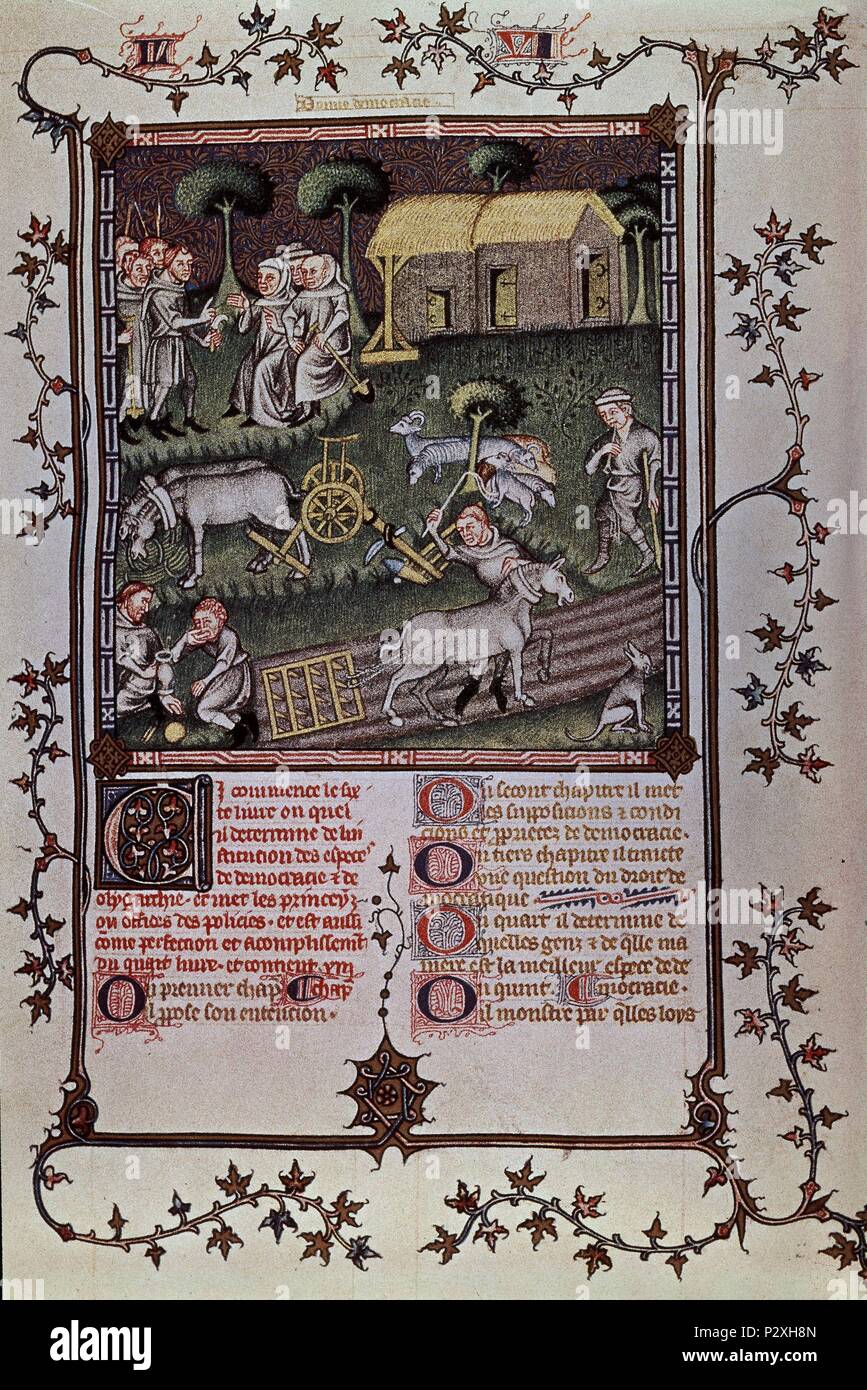 LI VI
Bonne democracie
Ci commence le six
te livre ou quel
il determine de lin
stitucion des especes
de democracie & de
olygarchie · et met les princeyz
ou offices des policies · et est aussi
come perfection et acomplissement
du quart livre · et contient
Ou premier chap̄ chap̄
il ꝓpose son entencion ·
Ou secont chapitre il met
les suposicions & condi
cions et proprietez de democracie ·
Ou tiers chapitre il traicte
une question du droit de
mocratique ·
Ou quart il determine de
quelles genz & de q̄lle ma
niere est la meilleur espece de de
Ou quint mocracie ·
il monstre par q̄lles loys
alamy
Image ID: P2XH8N
www.alamy.com